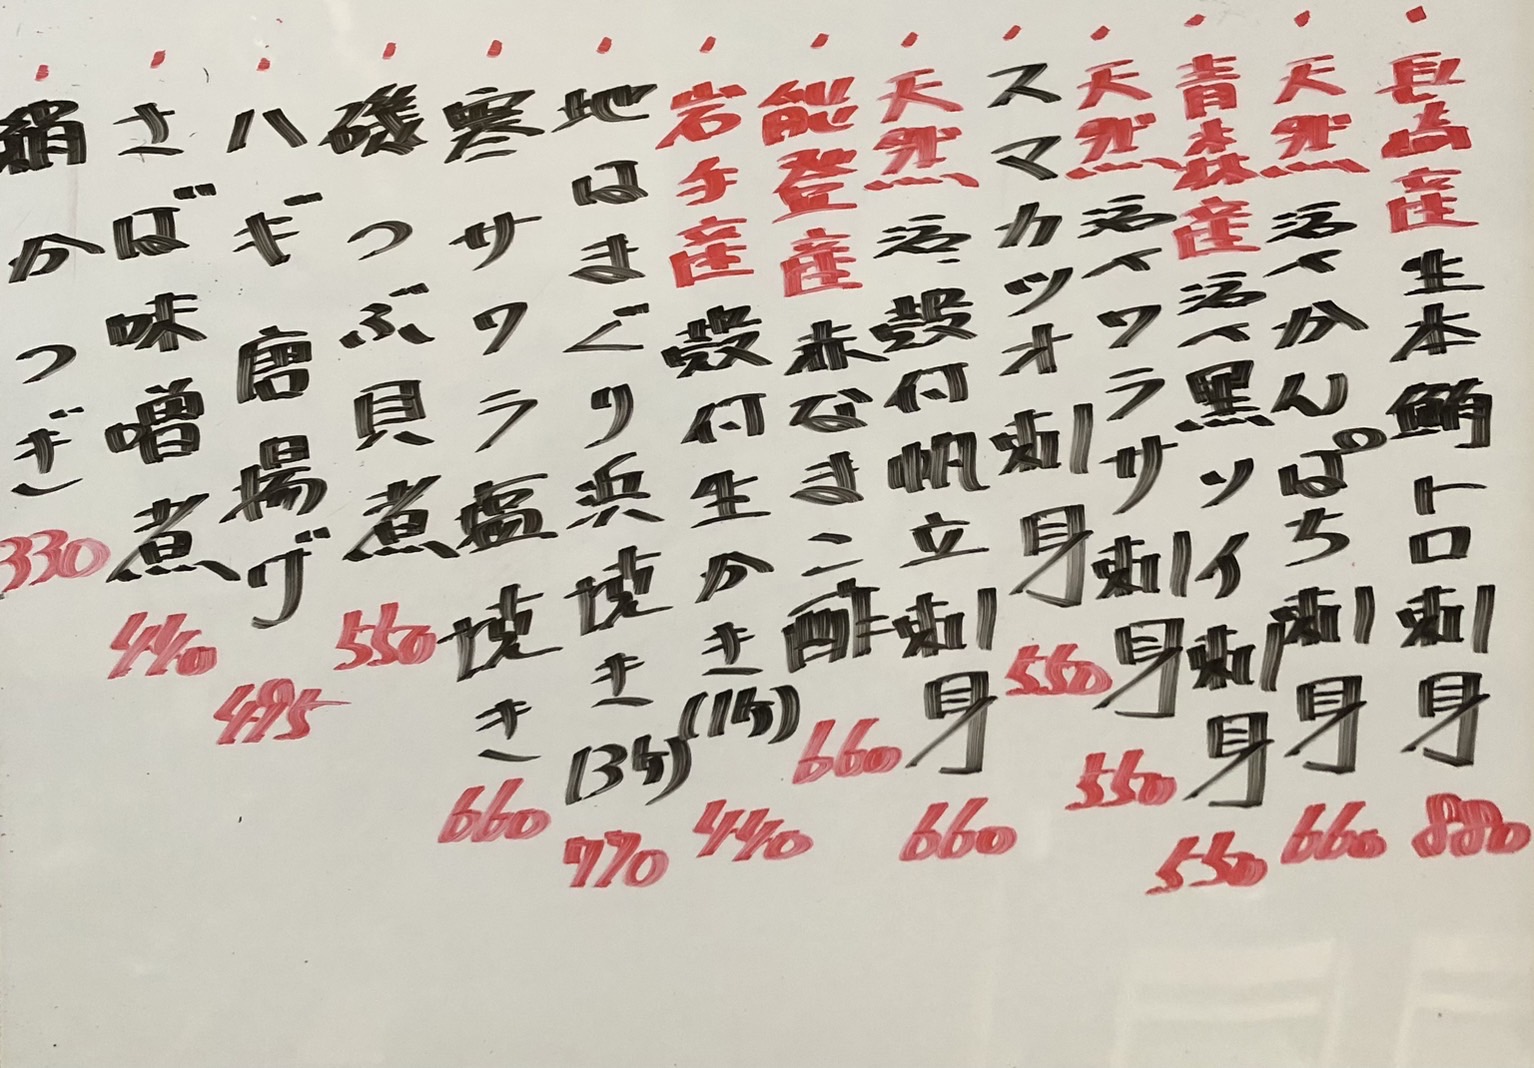 ・長崎産生本鮪トロ刺身 880
・天然活〆かんぱち刺身 660
・青森産活〆黒ソイ刺身 550
・天然活〆ワラサ刺身 550
・スマカツオ刺身 550
・天然活殻付帆立刺身 660
・能登産赤なまこ酢 660
・岩手産殻付生かき(1ケ) 440
・地はまぐり浜焼き(3ケ) 770
・寒サワラ塩焼き 660
・磯つぶ貝煮 550
・ハギ唐揚げ 495
・さば味噌煮 440
・絹かつぎ 330